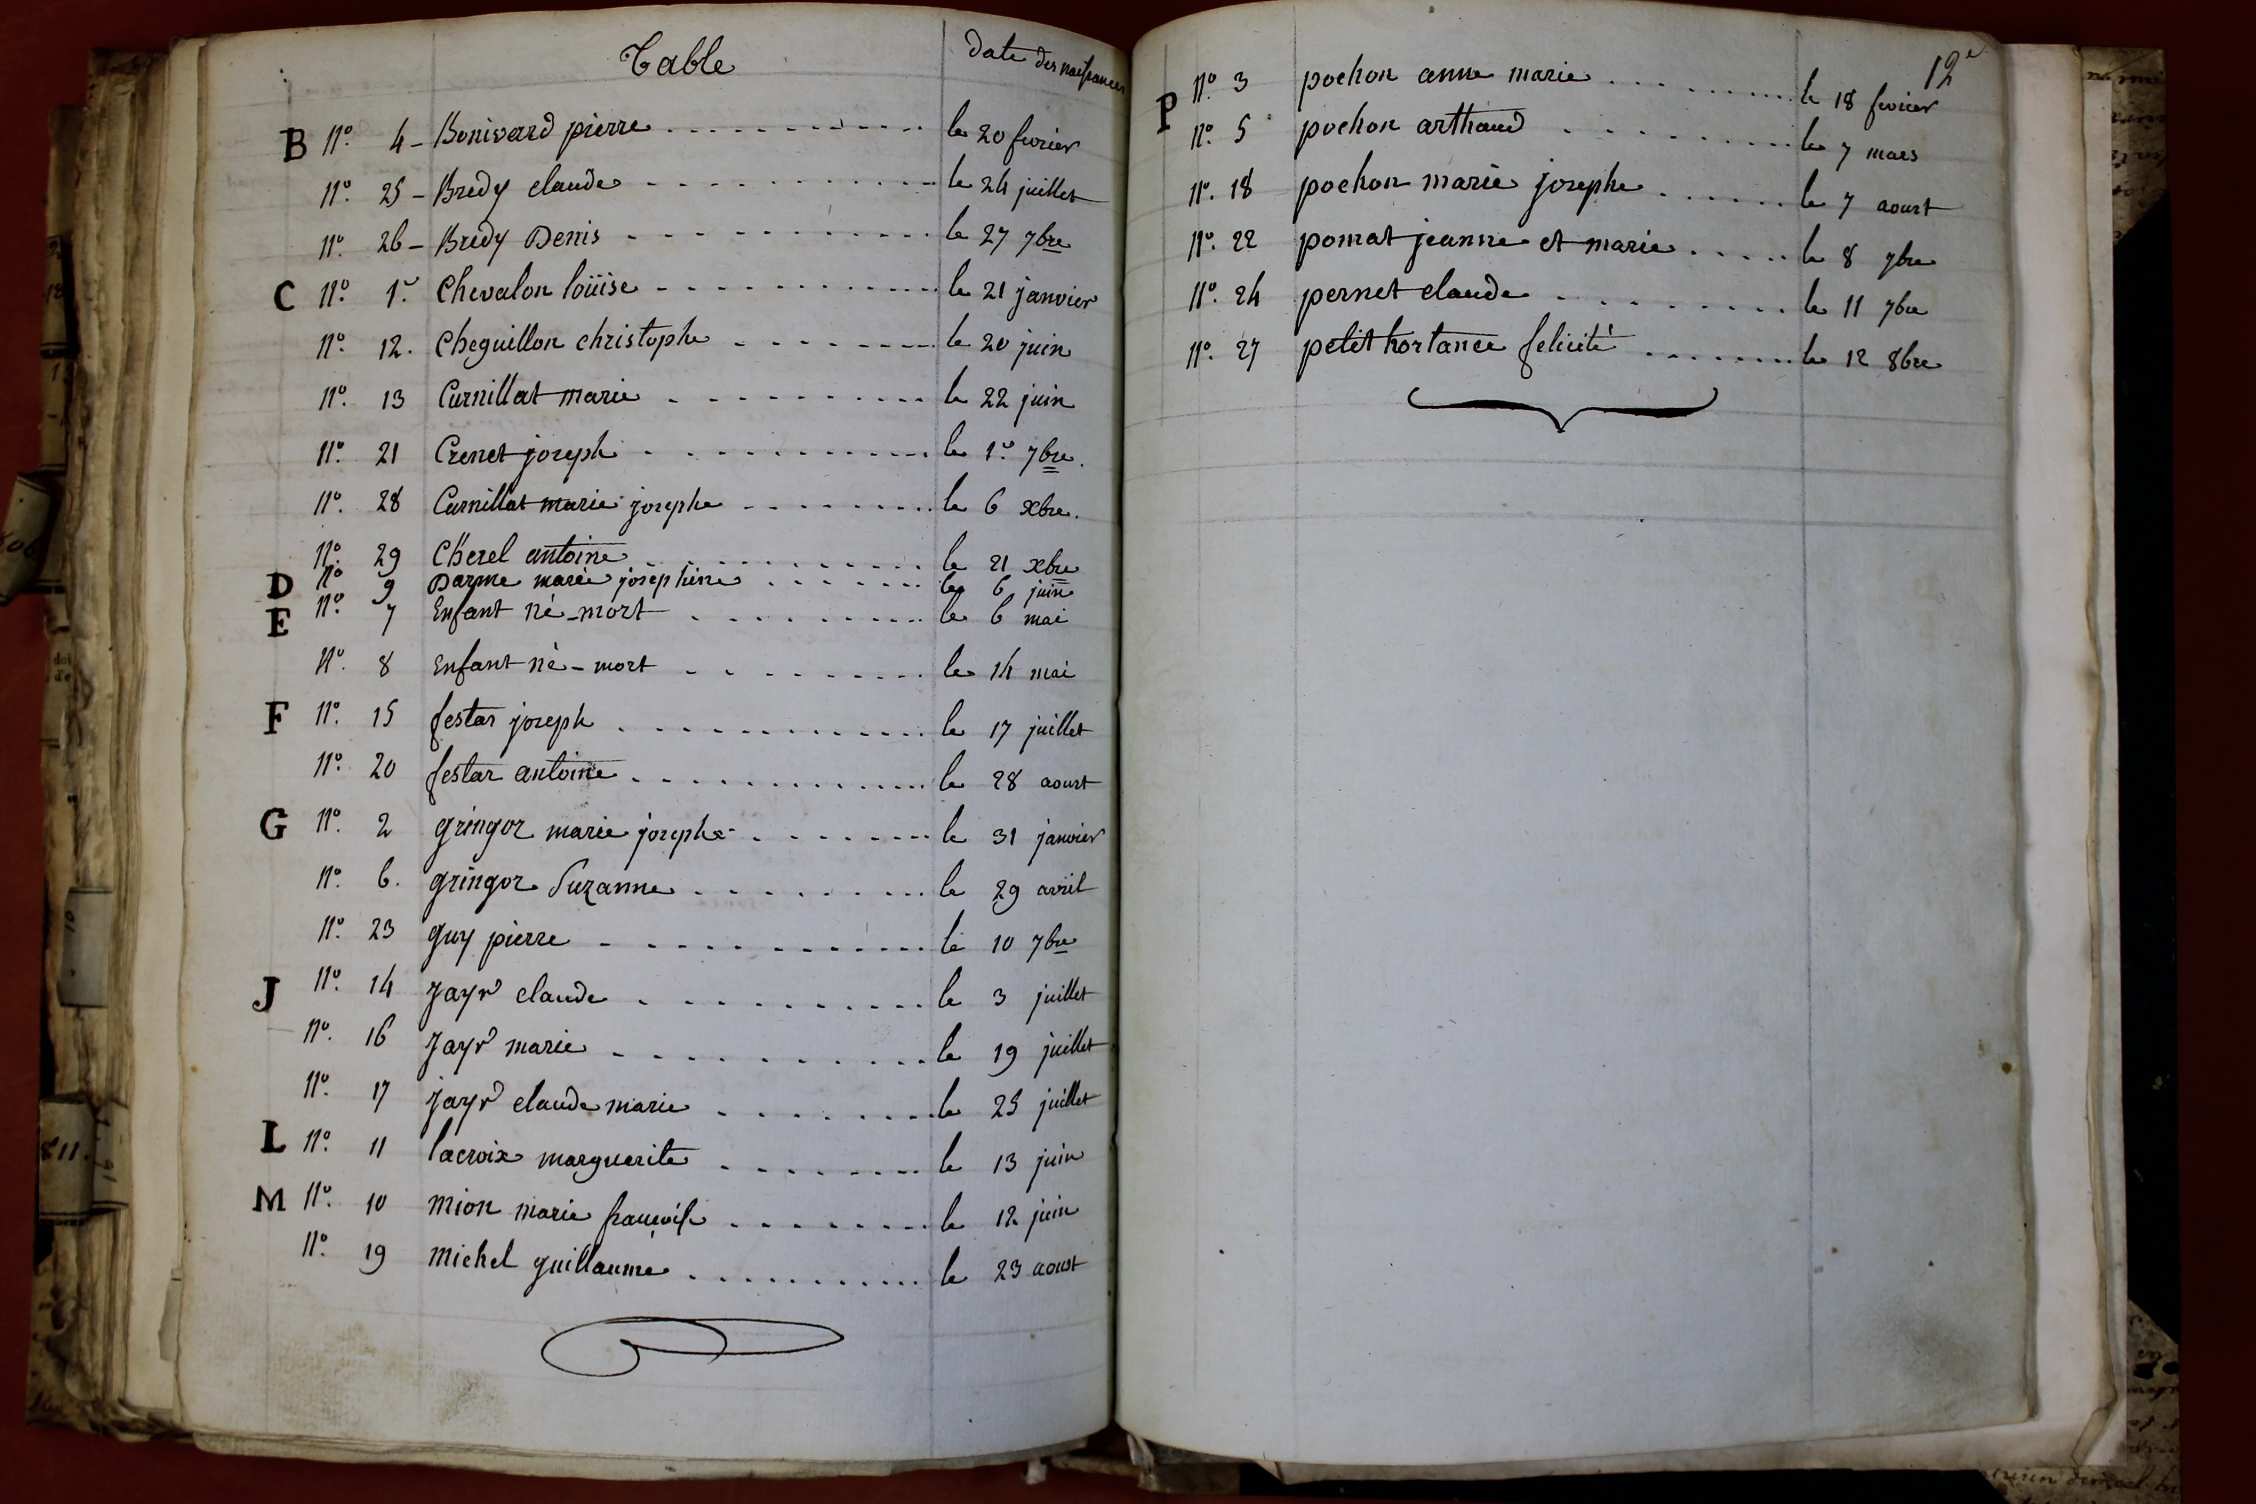 Table date des naissances
B N.o 4 - Bonivard pierre le 20 fevrier
N.o 25 - Bredy claude le 24 juillet
N.o 26 - Bredy Denis le 27 7bre
C N.o 1.r Chevalon loüise le 21 janvier
N.o 12. Cheguillon christophe le 20 juin
N.o 13 Curnillat marie le 22 juin
N.o 21 Crenet joseph le 1.r 7bre.
N.o 28 Curnillat marie josephe le 6 xbre.
N.o 29 Cherel antoine le 21 xbre
D N.o 9 Darme marie josephine le 6 juin
E N.o 7 Enfant né-mort le 6 mai
N.o 8 Enfant né-mort le 14 mai
F N.o 15 festas joseph le 17 juillet
N.o 20 festas antoine le 28 aoust
G N.o 2 gringoz marie josephe le 31 janvier
N.o 6. gringoz Suzanne le 29 avril
N.o 23 guy pierre le 10 7bre
J N.o 14 Jayr claude le 3 juillet
N.o 16 Jayr marie le 19 juillet
N.o 17 jayr claude marie le 25 juillet
L N.o 11 lacroix marguerite le 13 juin
M N.o 10 mion marie françoise le 12 juin
N.o 19 michel guillaume le 23 aoust
12e
P N.o 3 pochon anne marie le 18 fevrier
N.o 5 pochon arthaud le 7 mars
N.o 18 pochon marie josephe le 7 aoust
N.o 22 pomat jeanne et marie le 8 7bre
N.o 24 pernet claude le 11 7bre
N.o 27 petit hortance felicité le 12 8bre
811.